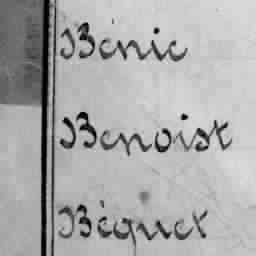 Bénic
Benoist
Béguet